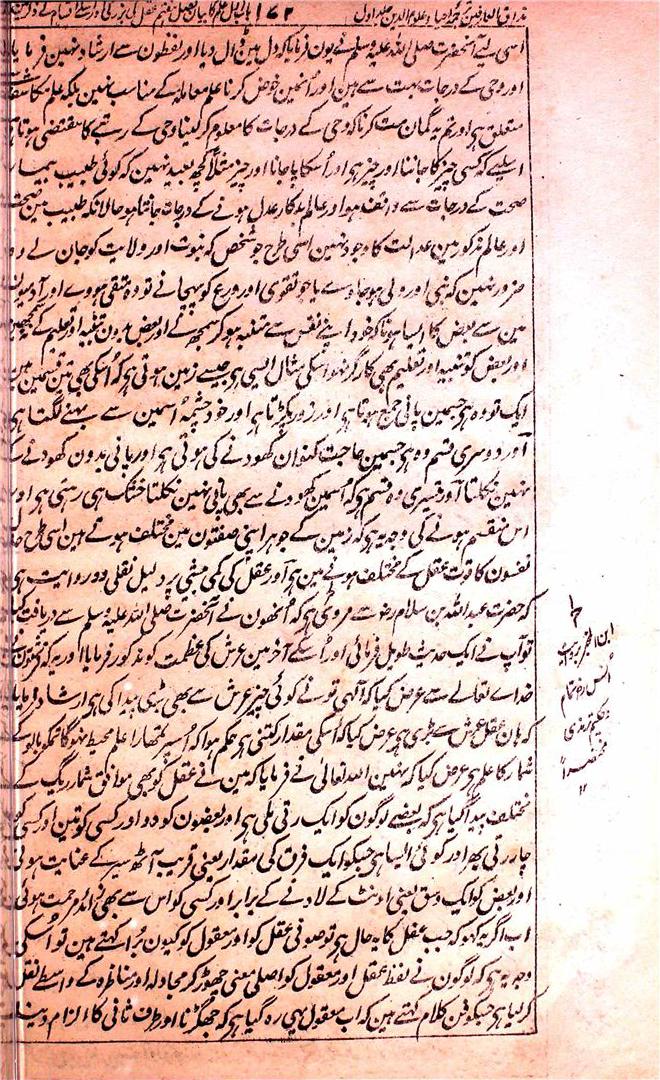 مذاق العارفین ترجمہ احیاء علوم الدین جلد اول ۱۷۲
اسی لیے آنحضرت صلی اللہ علیہ وسلم نے یون فرمایا کہ دل مین ڈال دیا اور لفظون سے ارشاد نہین فرمایا
اور وحی کے درجات بہت سے ہین اور اُنمین خوض کرنا علم معاملہ کے مناسب نہین بلکہ علم مکاشفہ
متعلق ہی اور تم یہ گمان مت کرنا کہ وحی کے درجات کا معلوم کر لینا وحی کے رتبے کا مقتضی ہوتا ہی
اسلیے کہ کسی چیز کا جاننا اور چیز ہی اور اُسکا پایا جانا اور چیز مثلاً کچھ بعید نہین کہ کوئی طبیب بیمار
صحت کے درجات سے واقف ہو اور عالم بدکار عدل ہونے کے درجات جانتا ہو حالانکہ طبیب مین صحت
اور عالم مذکور مین عدالت کا وجود نہین اسی طرح جو شخص کہ نبوت اور ولایت کو جان لے وہ
ضرور نہین کہ نبی اور ولی ہو جاوے یا جو تقوی اور ورع کو پہچانے تو وہ متقی ہووے اور آدمیون
مین سے بعض کا ایسا ہونا کہ خود اپنے نفس سے متنبہ ہو کر سمجھے اور بعض بدون تنبیہ اور تعلیم کے نہ سمجھین
اور بعض کو تنبیہ اور تعلیم بھی کارگر نہو اسکی مثال ایسی ہی جیسے زمین ہوتی ہی کہ اُسکی بھی تین قسمین ہین
ایک تو وہ ہی جسمین پانی جمع ہوتا ہی اور زور پکڑتا ہی اور خود چشمہ اُسمین سے بہنے لگتا ہی
اور دوسری قسم وہ ہی جسمین حاجت کنوان کھودنے کی ہوتی ہی اور پانی بدون کھودنے کے
نہین نکلتا اور تیسری وہ قسم ہی کہ اُسمین کھودنے سے بھی پانی نہین نکلتا خشک ہی رہتی ہی اور
اس منقسم ہونے کی وجہ یہ ہی کہ زمین کے جوہر اپنی صفتون مین مختلف ہوتے ہین اسی طرح حال
نفسون کا قوت عقل کے مختلف ہونے مین ہی اور عقل کی کمی بیشی پر دلیل نقلی وہ روایت ہی
کہ حضرت عبداللہ بن سلام رضہ سے مروی ہی کہ اُنھون نے آنحضرت صلی اللہ علیہ وسلم سے دریافت کیا
تو آپ نے ایک حدیث طویل فرمائی اور اُسکے آخر مین عرش کی عظمت کو مذکور فرمایا اور یہ کہ فرشتون نے
خداے تعالے سے عرض کیا کہ الٰہی تو نے کوئی چیز عرش سے بھی بڑی پیدا کی ہی ارشاد فرمایا
کہ ہان عقل عرش سے بڑی ہی عرض کیا کہ اُسکی مقدار کتنی ہی حکم ہوا کہ اُسپر تمھارا علم محیط نہوگا تمکو بالو کے
شمار کا علم ہی عرض کیا کہ نہین اللہ تعالیٰ نے فرمایا کہ مین نے عقل کو بھی موافق شمار ریگ کے
مختلف پیدا کیا ہی کہ بعضے لوگون کو ایک رتی ملی ہی اور بعضون کو دو اور کسی کو تین اور کسی کو
چار رتی پھر اور کوئی ایسا ہی جسکو ایک فرق کی مقدار یعنی قریب آٹھ سیر کے عنایت ہوئی
اور بعض کو ایک وسق یعنی اونٹ کے لادنے کے برابر اور کسی کو اُس سے بھی زائد مرحمت ہوئی
اب اگر یہ کہو کہ جب عقل کا یہ حال ہی تو صوفی عقل کو اور معقول کو کیون بُرا کہتے ہین تو اُسکی
وجہ یہ ہی کہ لوگون نے لفظ عقل اور معقول کو اصلی معنی چھوڑ کر مجادلہ اور مناظرہ کے واسطے نقل
کر لیا ہی جسکو فن کلام کہتے ہین کہ اب معقول یہی رہ گیا ہی کہ جھگڑنا اور طرف ثانی کا الزام دینا
ابن المجبر بروایت
انس رضہ تمام
و حکیم ترمذی
مختصراً
۱۲